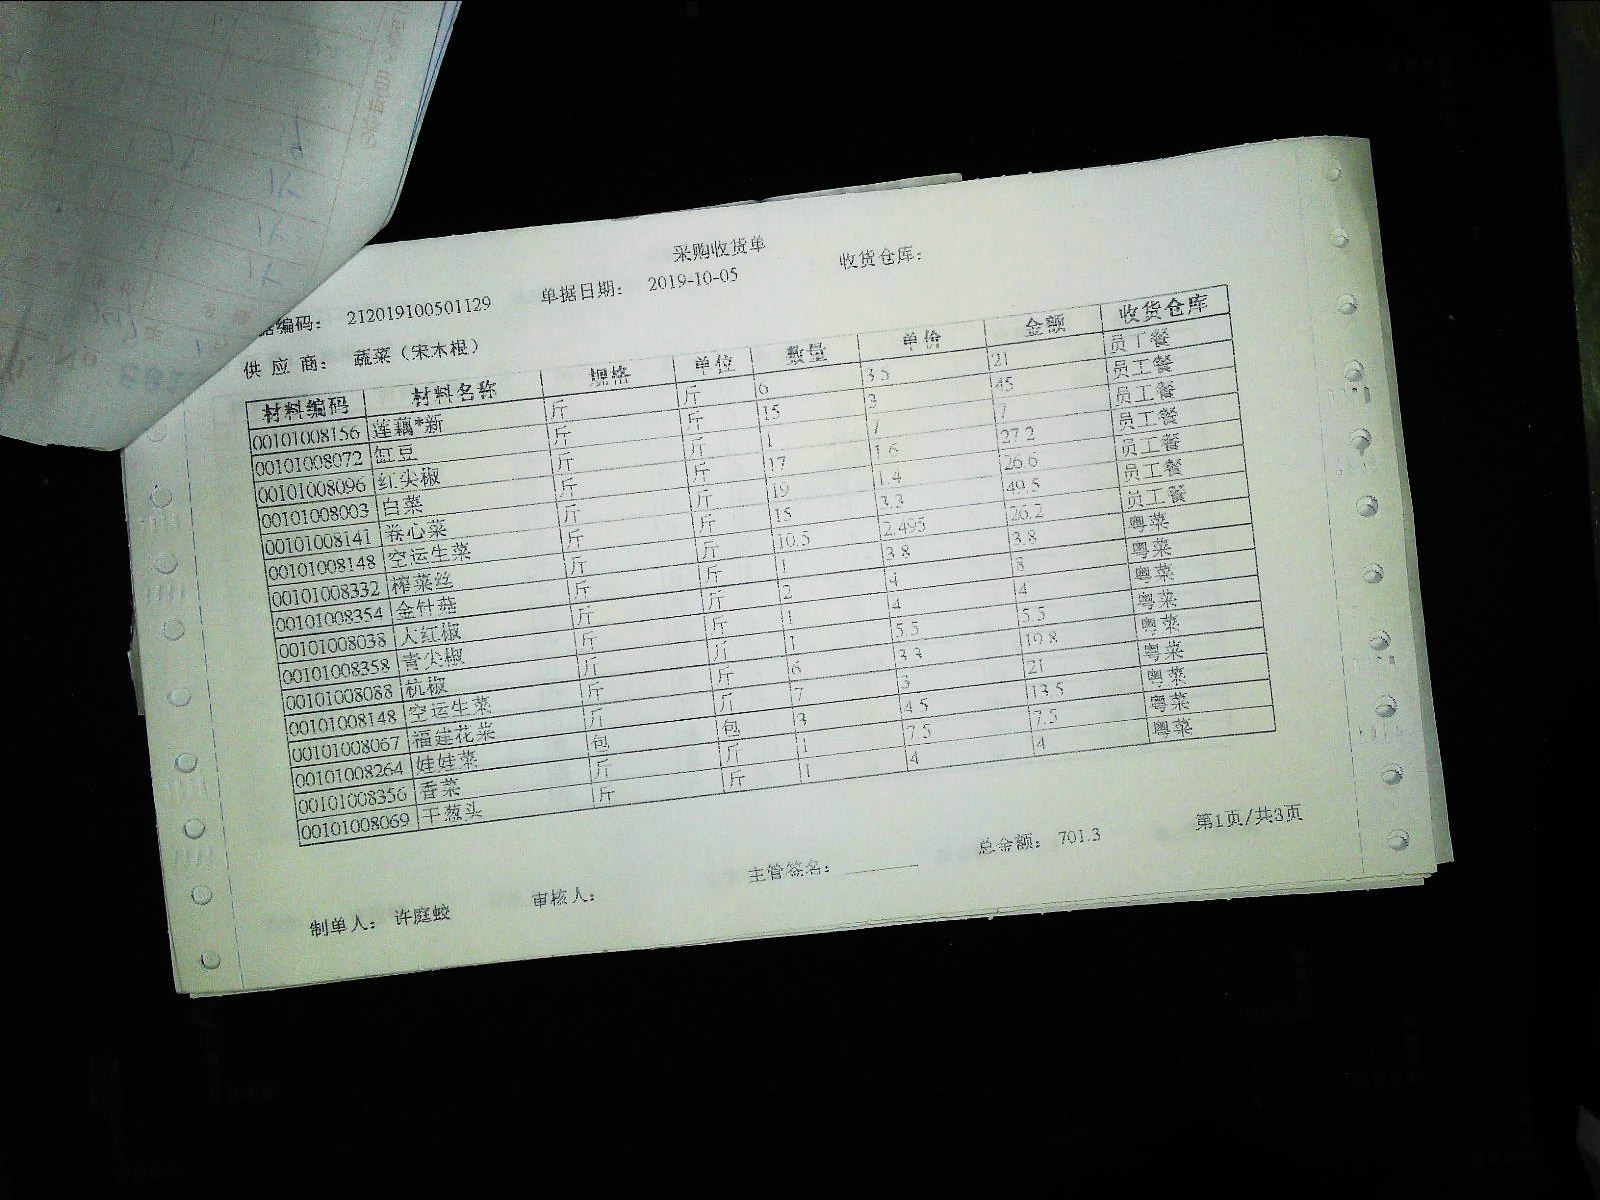 采购收货单
据编码： 212019100501129 单据日期： 2019-10-05 收货仓库：
供 应 商： 蔬菜（宋木根）
材料编码 材料名称 规格 单位 数量 单价 金额 收货仓库
00101008156 莲藕*新 斤 斤 6 3.5 21 员工餐
00101008072 缸豆 斤 斤 15 3 45 员工餐
00101008096 红尖椒 斤 斤 1 7 7 员工餐
00101008003 白菜 斤 斤 17 1.6 27.2 员工餐
00101008141 卷心菜 斤 斤 19 1.4 26.6 员工餐
00101008148 空运生菜 斤 斤 15 3.3 49.5 员工餐
00101008332 榨菜丝 斤 斤 10.5 2.495 26.2 员工餐
00101008354 金针菇 斤 斤 1 3.8 3.8 粤菜
00101008038 大红椒 斤 斤 2 4 8 粤菜
00101008358 青尖椒 斤 斤 1 4 4 粤菜
00101008088 杭椒 斤 斤 1 5.5 5.5 粤菜
00101008148 空运生菜 斤 斤 6 3.3 19.8 粤菜
00101008067 福建花菜 斤 斤 7 3 21 粤菜
00101008264 娃娃菜 包 包 3 4.5 13.5 粤菜
00101008356 香菜 斤 斤 1 7.5 7.5 粤菜
00101008069 干葱头 斤 斤 1 4 4 粤菜
制单人： 许庭蛟 审核人： 主管签名： 总金额： 701.3 第1页/共3页